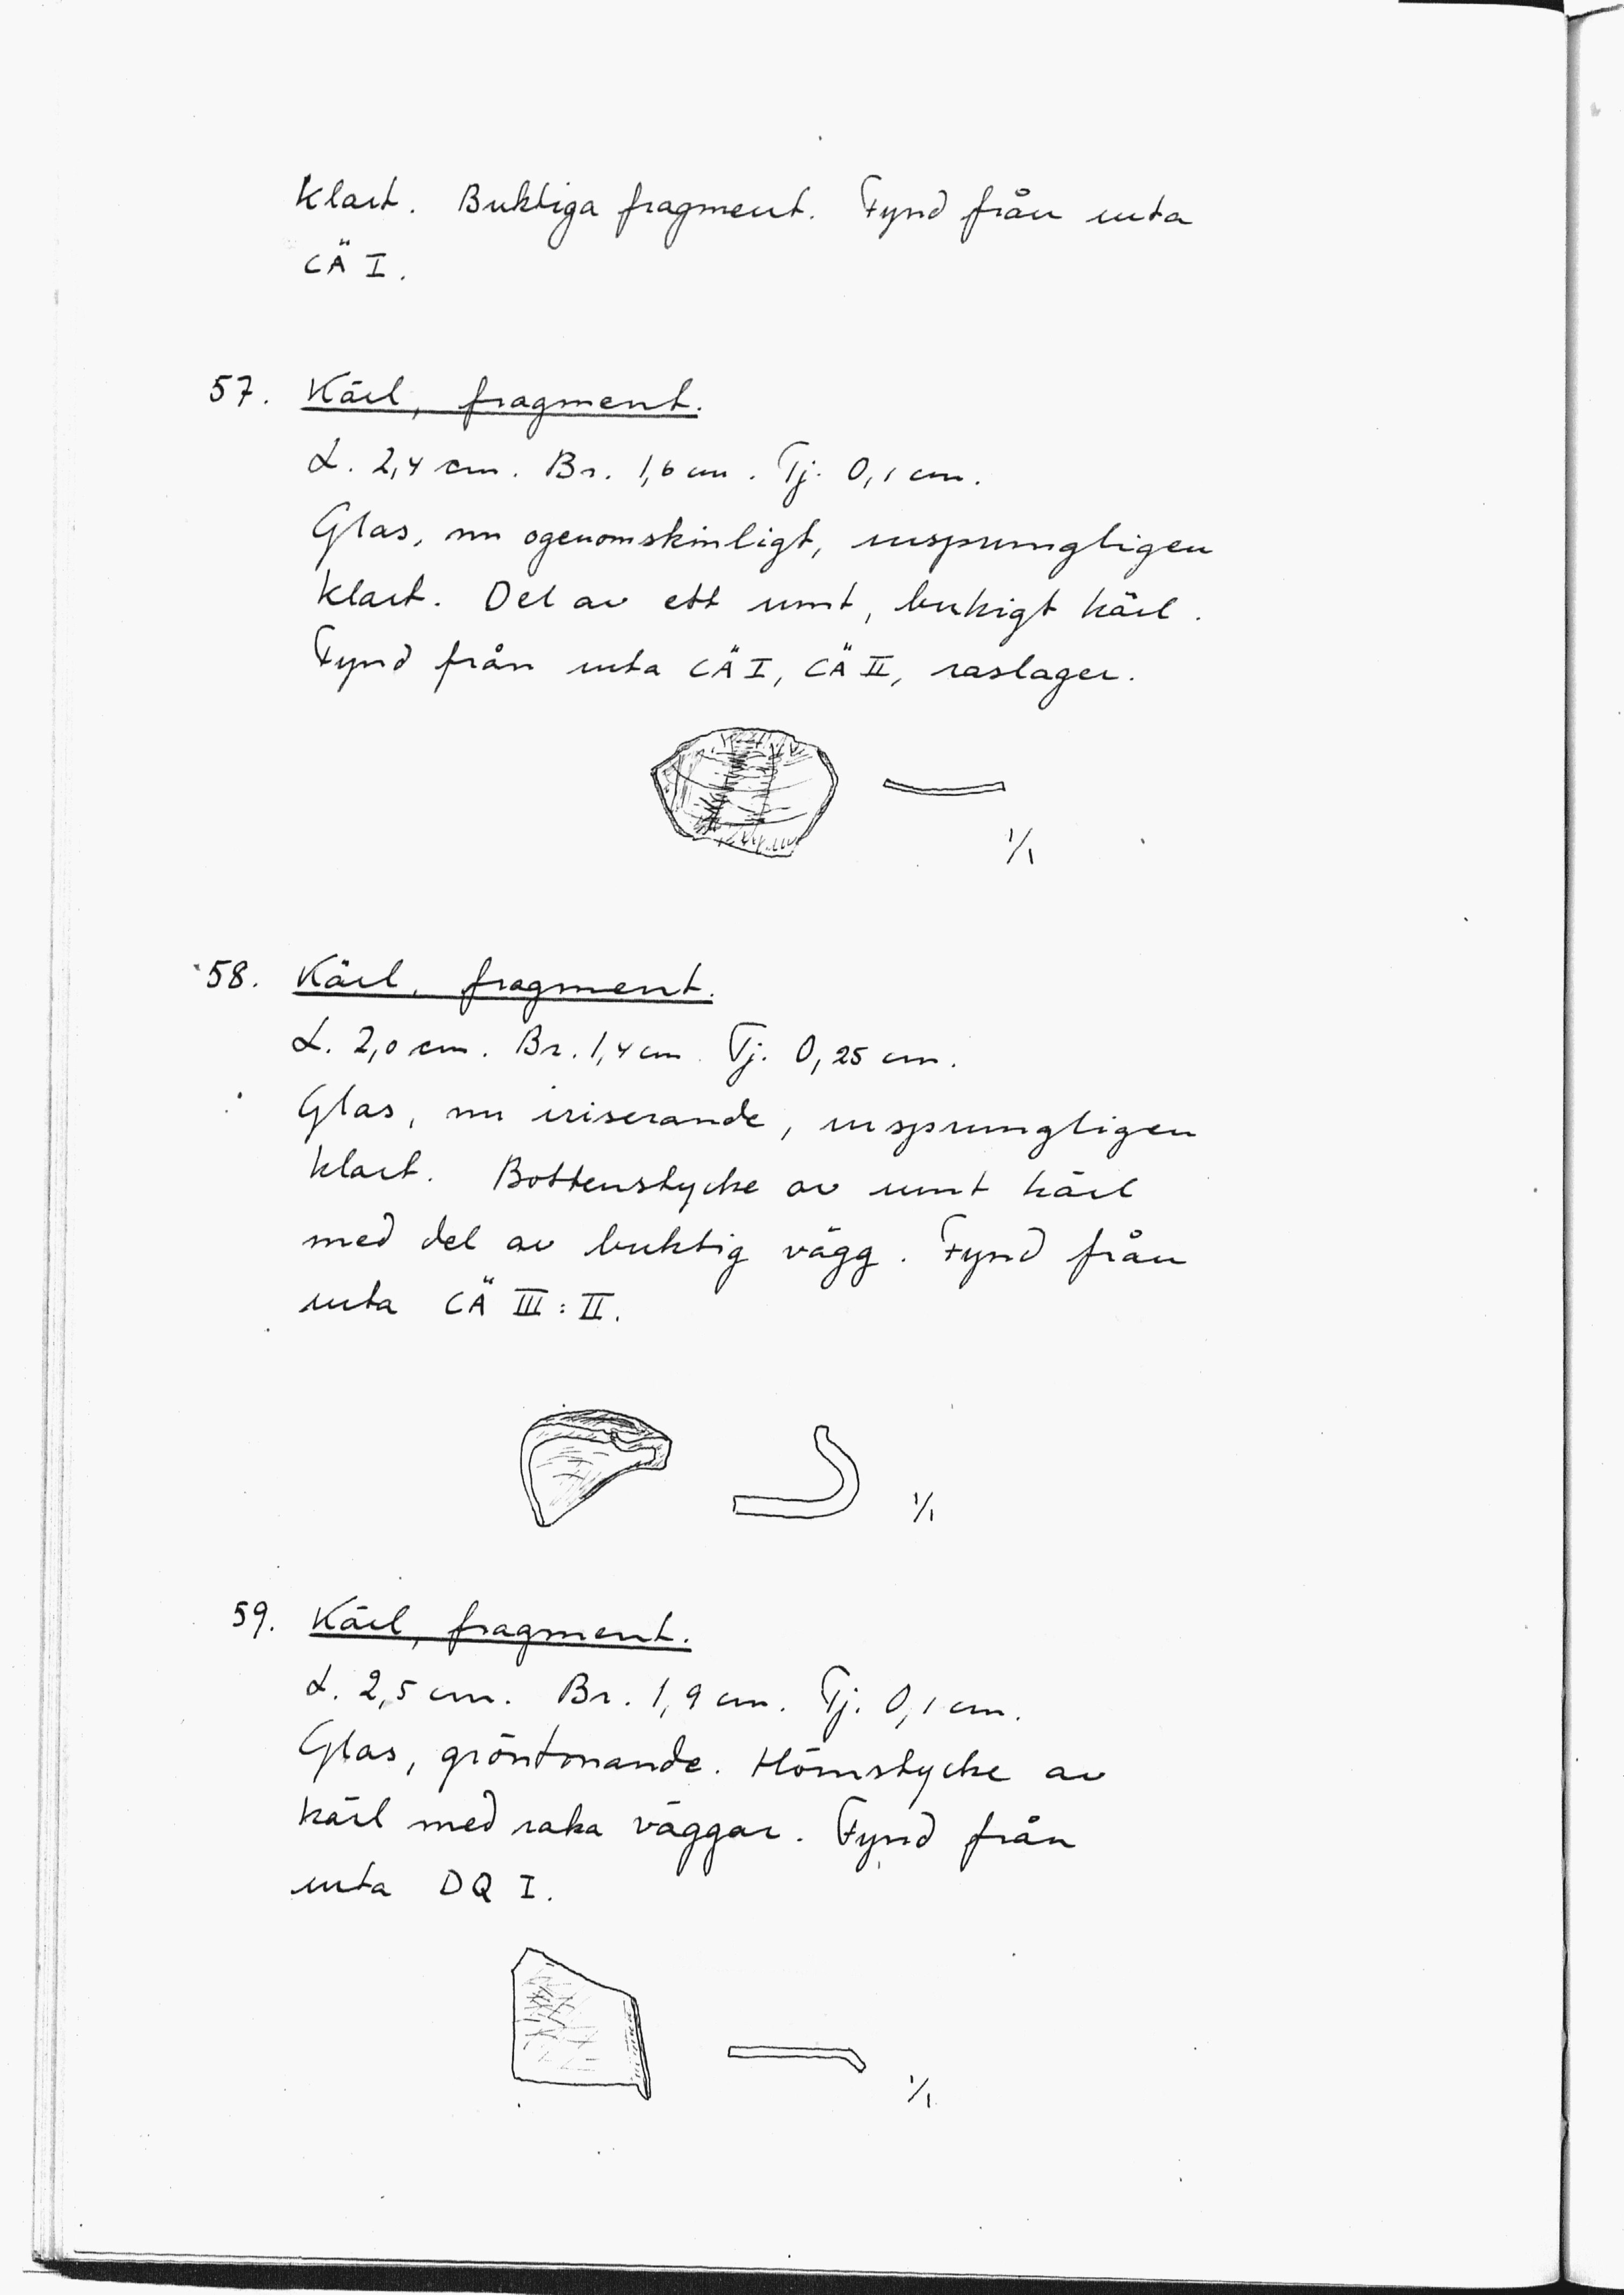 Klart. Buktiga fragment. Fynd från ruta
CÄ I.
57. Kärl, fragment.
L. 2,4 cm. Br. 1,6 cm. Tj. 0,1 cm.
Glas, nu ogenomskinligt, ursprungligen
klart. Del av ett runt, bukigt kärl.
Fynd från ruta CÄ I, CÄ II, raslager.
1/1
58. Kärl, fragment.
L. 2,0 cm. Br. 1,4 cm. Tj. 0,25 cm.
Glas, nu iriserande, ursprungligen
klart. Bottenstycke av runt kärl
med del av buktig vägg. Fynd från
ruta CÄ III:II.
1/1
59. Kärl, fragment.
L. 2,5 cm. Br. 1,9 cm. Tj. 0,1 cm.
Glas, gröntonande. Hörnstycke av
kärl med raka väggar. Fynd från
ruta DQ I.
1/1